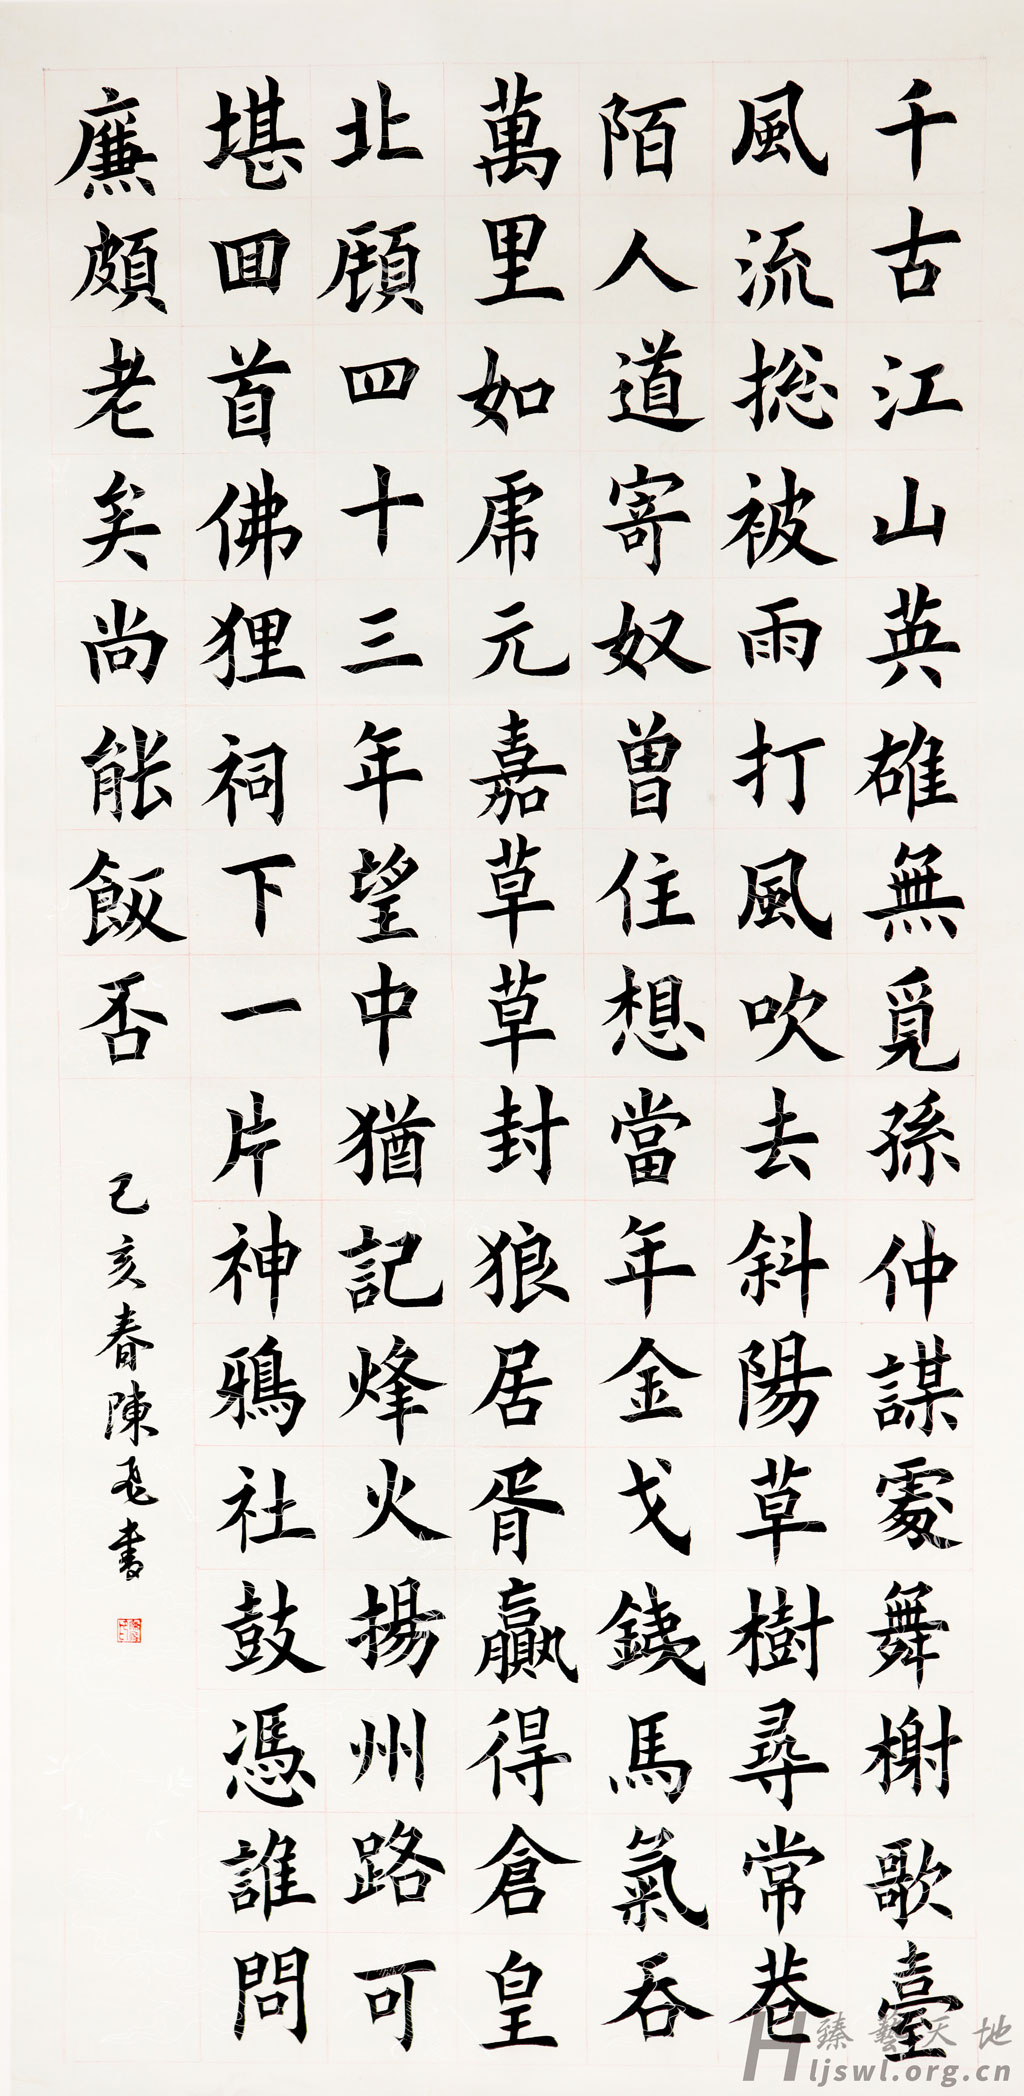 千古江山英雄無覓孫仲謀處舞榭歌臺
風流捴被雨打風吹去斜陽草樹尋常巷
陌人道寄奴曾住想當年金戈鐵馬氣吞
萬里如虎元嘉草草封狼居胥贏得倉皇
北顧四十三年望中猶記烽火揚州路可
堪回首佛狸祠下一片神鴉社鼓憑誰問
廉頗老矣尚能飯否
己亥春陳書
臻藝天地
Hljswl.org.cn